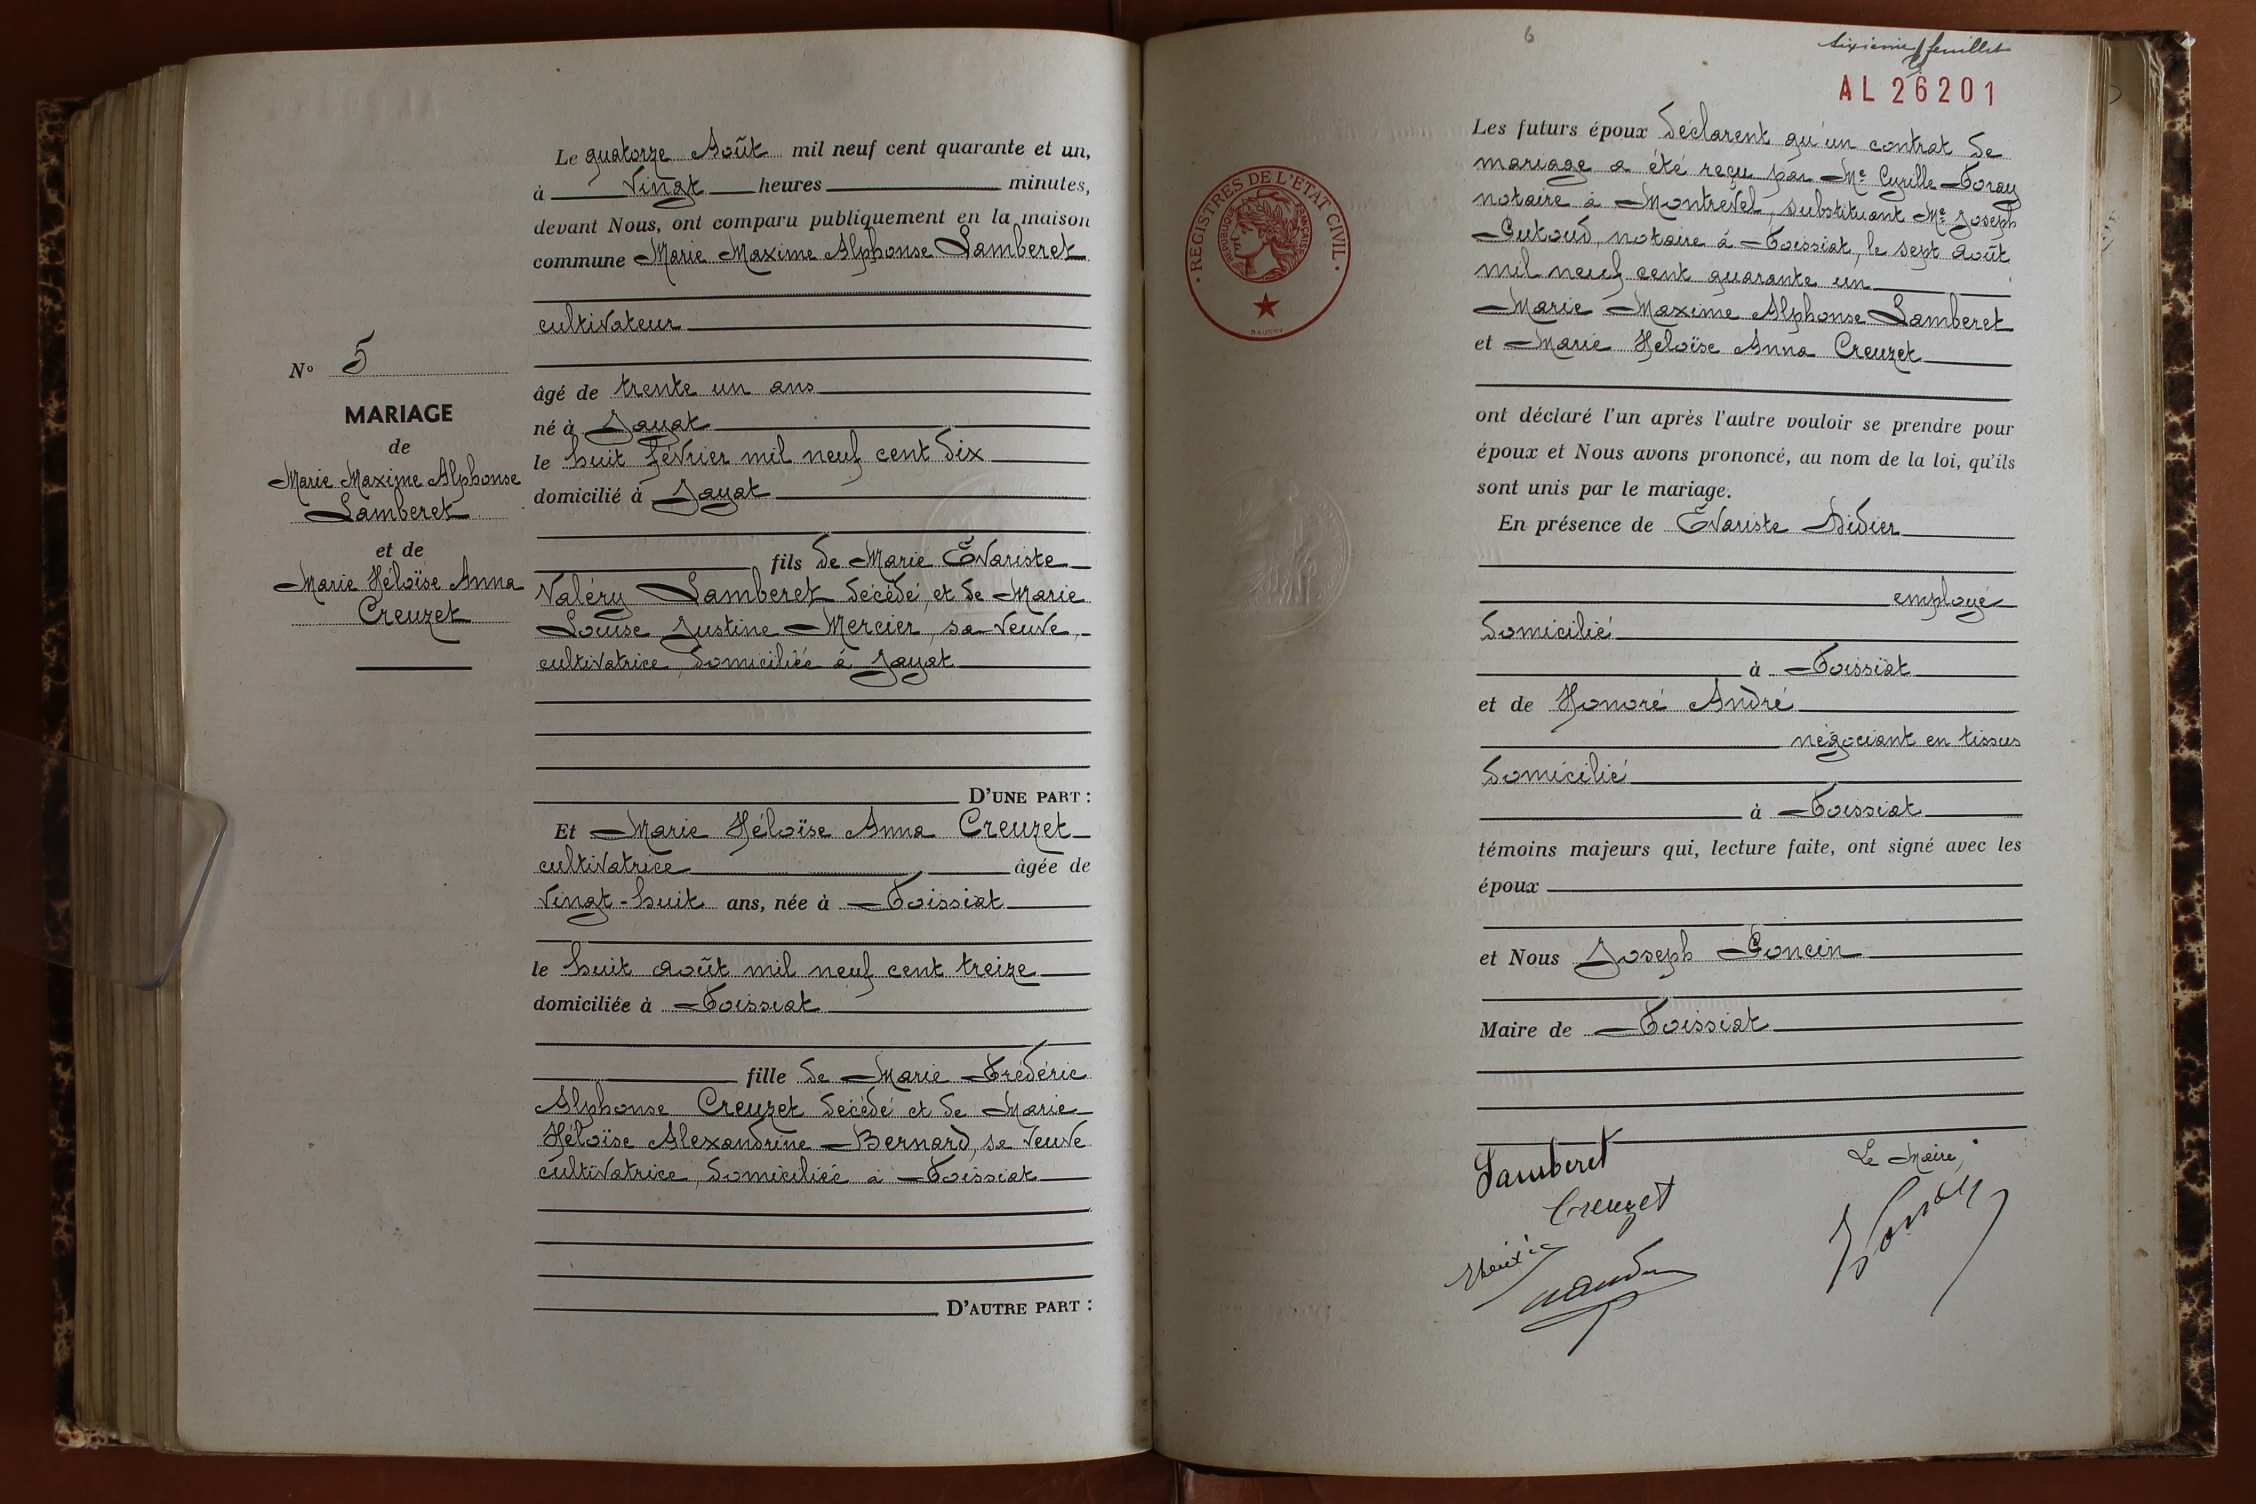 Le quatorze Août mil neuf cent quarante et un,
à vingt heures minutes,
devant Nous, ont comparu publiquement en la maison
commune Marie Maxime Alphonse Lamberet
cultivateur
N° 5
MARIAGE
de
Marie Maxime Alphonse
Lamberet
et de
Marie Héloïse Anna
Creuzet
âgé de trente un ans
né à Jayat
le huit février mil neuf cent dix
domicilié à Jayat
fils de Marie Evariste
Valéry Lamberet décédé, et de Marie
Louise Justine Mercier, sa veuve,
cultivatrice, domiciliée à Jayat
D'UNE PART :
Et Marie Héloïse Anna Creuzet
cultivatrice âgée de
vingt-huit ans, née à Foissiat
le huit août mil neuf cent treize
domiciliée à Foissiat
fille de Marie Frédéric
Alphonse Creuzet décédé et de Marie
Héloïse Alexandrine Bernard, sa veuve
cultivatrice, domiciliée à Foissiat
D'AUTRE PART :
6
sixième feuillet
AL 26201
REGISTRES DE L'ETAT CIVIL
REPUBLIQUE FRANÇAISE
Les futurs époux déclarent qu'un contrat de
mariage a été reçu par Me Cyrille Foray
notaire à Montrevel, substituant Me Joseph
notaire à Foissiat, le sept août
mil neuf cent quarante un
Marie Maxime Alphonse Lamberet
et Marie Heloïse Anna Creuzet
ont déclaré l'un après l'autre vouloir se prendre pour
époux et Nous avons prononcé, au nom de la loi, qu'ils
sont unis par le mariage.
En présence de Evariste Didier
employé
domicilié
à Foissiat
et de Honoré André
négociant en tissus
domicilié
à Foissiat
témoins majeurs qui, lecture faite, ont signé avec les
époux
et Nous Joseph Poncin
Maire de Foissiat
Lamberet
Le Maire,
Creuzet